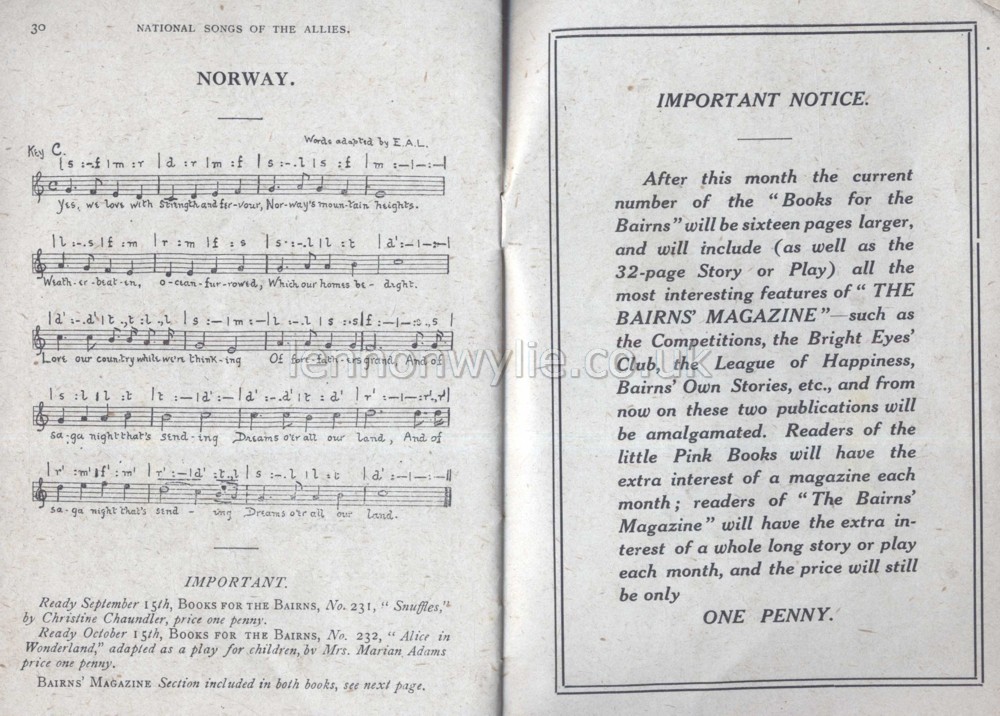 30 NATIONAL SONGS OF THE ALLIES.
NORWAY.
Words adapted by E.A.L.
Key C.
| s :-.f | m : r | d : r | m : f | s :-.l | s : f | m :—|—:—|
Yes, we love with strength and fer-vour, Nor-way's moun-tain heights.
| l :-.s | f : m | r : m | f : s | s :-.l | l : t | d' :—|—:—|
Weath-er-beat-en, o-cean-fur-rowed, Which our homes be-dight.
Love our country while we're think-ing Of fore-fath-ers grand, And of
sa-ga night that's send-ing Dreams o'er all our land, And of
sa-ga night that's send-ing Dreams o'er all our land.
IMPORTANT.
Ready September 15th, BOOKS FOR THE BAIRNS, No. 231, "Snuffles,"
by Christine Chaundler, price one penny.
Ready October 15th, BOOKS FOR THE BAIRNS, No. 232, "Alice in
Wonderland," adapted as a play for children, by Mrs. Marian Adams
price one penny.
BAIRNS' MAGAZINE Section included in both books, see next page.
IMPORTANT NOTICE.
After this month the current
number of the "Books for the
Bairns" will be sixteen pages larger,
and will include (as well as the
32-page Story or Play) all the
most interesting features of "THE
BAIRNS' MAGAZINE"—such as
the Competitions, the Bright Eyes'
Club, the League of Happiness,
Bairns' Own Stories, etc., and from
now on these two publications will
be amalgamated. Readers of the
little Pink Books will have the
extra interest of a magazine each
month; readers of "The Bairns'
Magazine" will have the extra in-
terest of a whole long story or play
each month, and the price will still
be only
ONE PENNY.
lennonwylie.co.uk